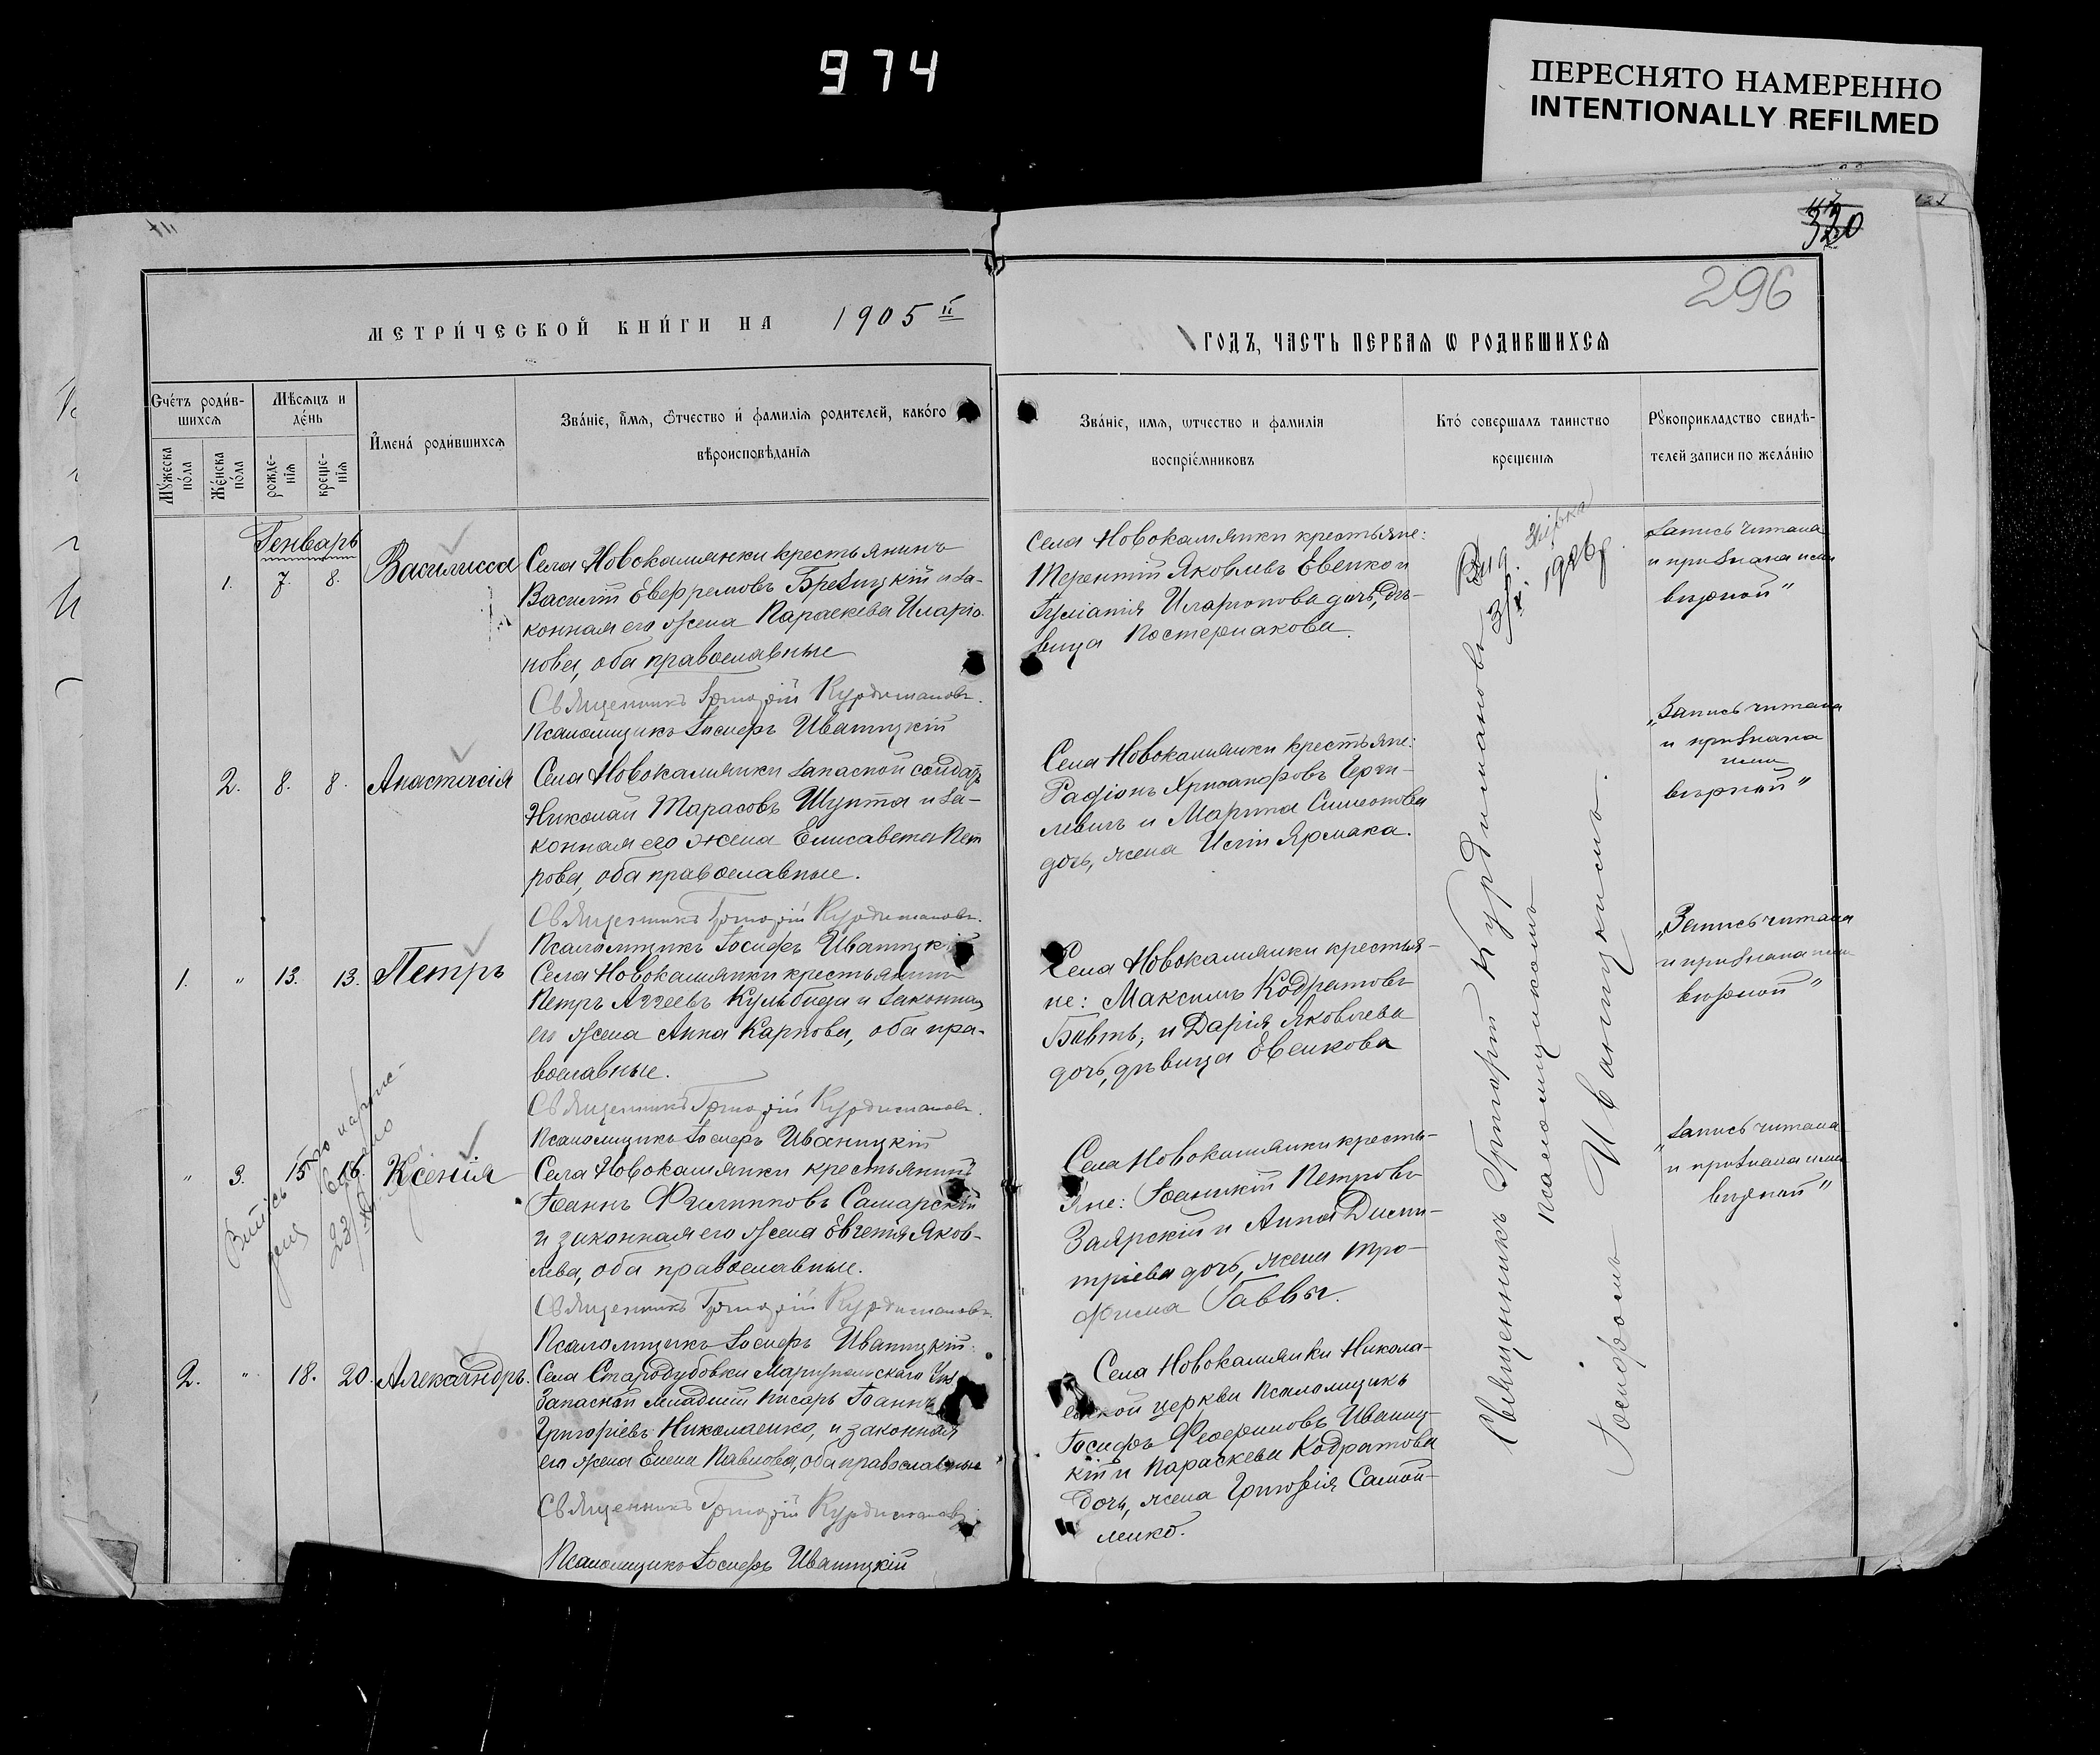 974
ПЕРЕСНЯТО НАМЕРЕННО
INTENTIONALLY REFILMED
320
296
МЕТРИ́ЧЕСКОЙ КНИ́ГИ НА 1905й
ГОДЪ, ЧАСТЬ ПЕРВАЯ Ѡ РОДИВШИХСЯ
Сче́тъ роди́в-
шихся
Мѣсяцъ и
де́нь
Му́жеска
по́ла
Же́нска
по́ла
рожде-
нія
креще-
нія
Имена́ роди́вшихся
Зва́ніе, и́мя, ѻтчество и фамилія родителей, како́го
вѣроисповѣданія
Зва́ніе, имя, ѡтчество и фамилія
воспріе́мниковъ
Кто́ совершалъ таинство
крещенія
Рꙋкоприкладство свидѣ-
телей записи по жела́нію
Генварь
1. 7. 8. Василисса
Села Новокамлянки крестьянинъ
Василій Евфремовъ Брезицкій и за-
конная его жена Параскева Иларіо-
нова, оба православные
Священникъ Григорій Курдимановъ.
Псаломщикъ Іосифъ Иваницкій
Села Новокамлянки крестьяне:
Терентій Яковлевъ Евенко и
Иларіонова дочь, дѣ-
вица Постернакова.
Запись читана
и признана нами
вѣрной"
2. 8. 8. Анастасія
Села Новокамлянки запасной солдатъ
Николай Тарасовъ Шупта и за-
конная его жена Елисавета Пет
рова, оба православные.
Священникъ Григорій Курдимановъ.
Псаломщикъ Іосифъ Иваницкій
Села Новокамлянки крестьяне:
Радіонъ Хрисанфовъ
и Марина Симеонова
дочь, жена Ярмака.
„Запись читана
и признана
нами
вѣрной"
1. " 13. 13. Петръ
Села Новокамлянки крестьянинъ
Петръ Аггеевъ Кульбида и законная
его жена Анна Карпова, оба пра-
вославные.
Священникъ Григорій Курдимановъ.
Псаломщикъ Іосифъ Иваницкій
Села Новокамлянки крестья-
не: Максимъ Кодратовъ
и Дарія Яковлева
дочь, дѣвица Евенкова
„Запись читана
и признана нами
вѣрной"
" 3. 15 16. Ксенія
Села Новокамлянки крестьянинъ
Іоаннъ Филипповъ Самарскій
и законная его жена Евгенія Яков-
лева, оба православные.
Священникъ Григорій Курдимановъ.
Псаломщикъ Іосифъ Иваницкій.
Села Новокамлянки кресть-
яне: Іоаникій Петровъ
Заярскій и Анна Дими-
тріева дочь, жена Тро-
фима Саввы.
„Запись читана
и признана нами
вѣрной"
2. " 18. 20. Александръ.
Села Стародубовки Маріупольскаго
Запасной Младшій писарь Іоаннъ
Григоріевъ Николаенко, и законная
его жена Елена Павлова, оба православные
Священникъ Григорій Курдимановъ
Псаломщикъ Іосифъ Иваницкій
Села Новокамлянки Никола-
евской церкви Псаломщикъ
Іосифъ Иваниц-
кій и Параскева Кодратова
дочь, жена Григорія Самой-
ленко.
Священникъ Григорій Курдимановъ
Псаломщикомъ
Іосифомъ Иваницкимъ.